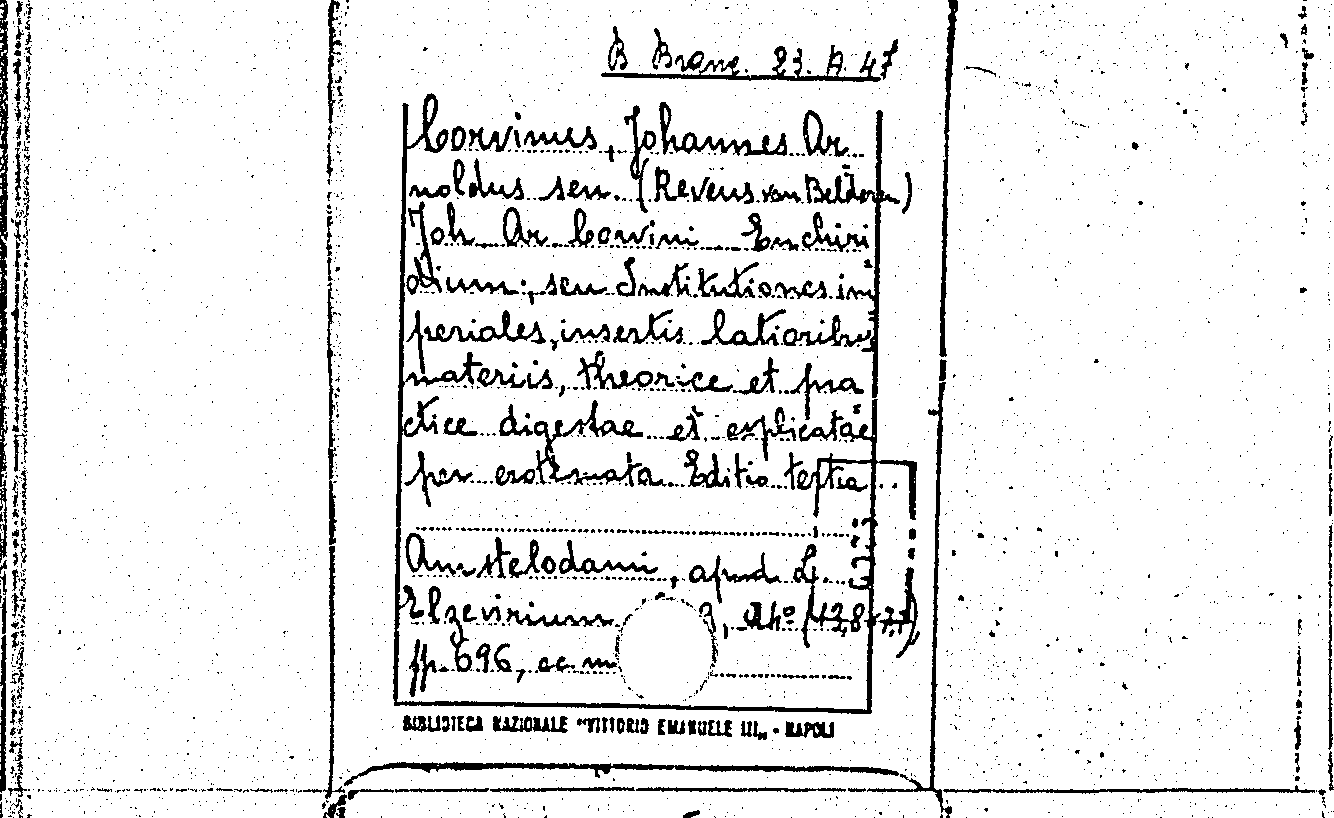 B Branc. 23. A. 47
Corvinus, Johannes Ar
noldus sen. (Revens van Belderen)
Joh. Ar. Corvini Enchiri
dium; seu Institutiones im
periales, insertis latioribus
materiis, theorice et pra
ctice digestae et explicatae
per erotemata. Editio tertia..
Amstelodami, apud L.
Elzevirium 9, in (13,8×7,7),
pp. 696, cc. m
BIBLIOTECA NAZIONALE "VITTORIO EMANUELE III„ - NAPOLI